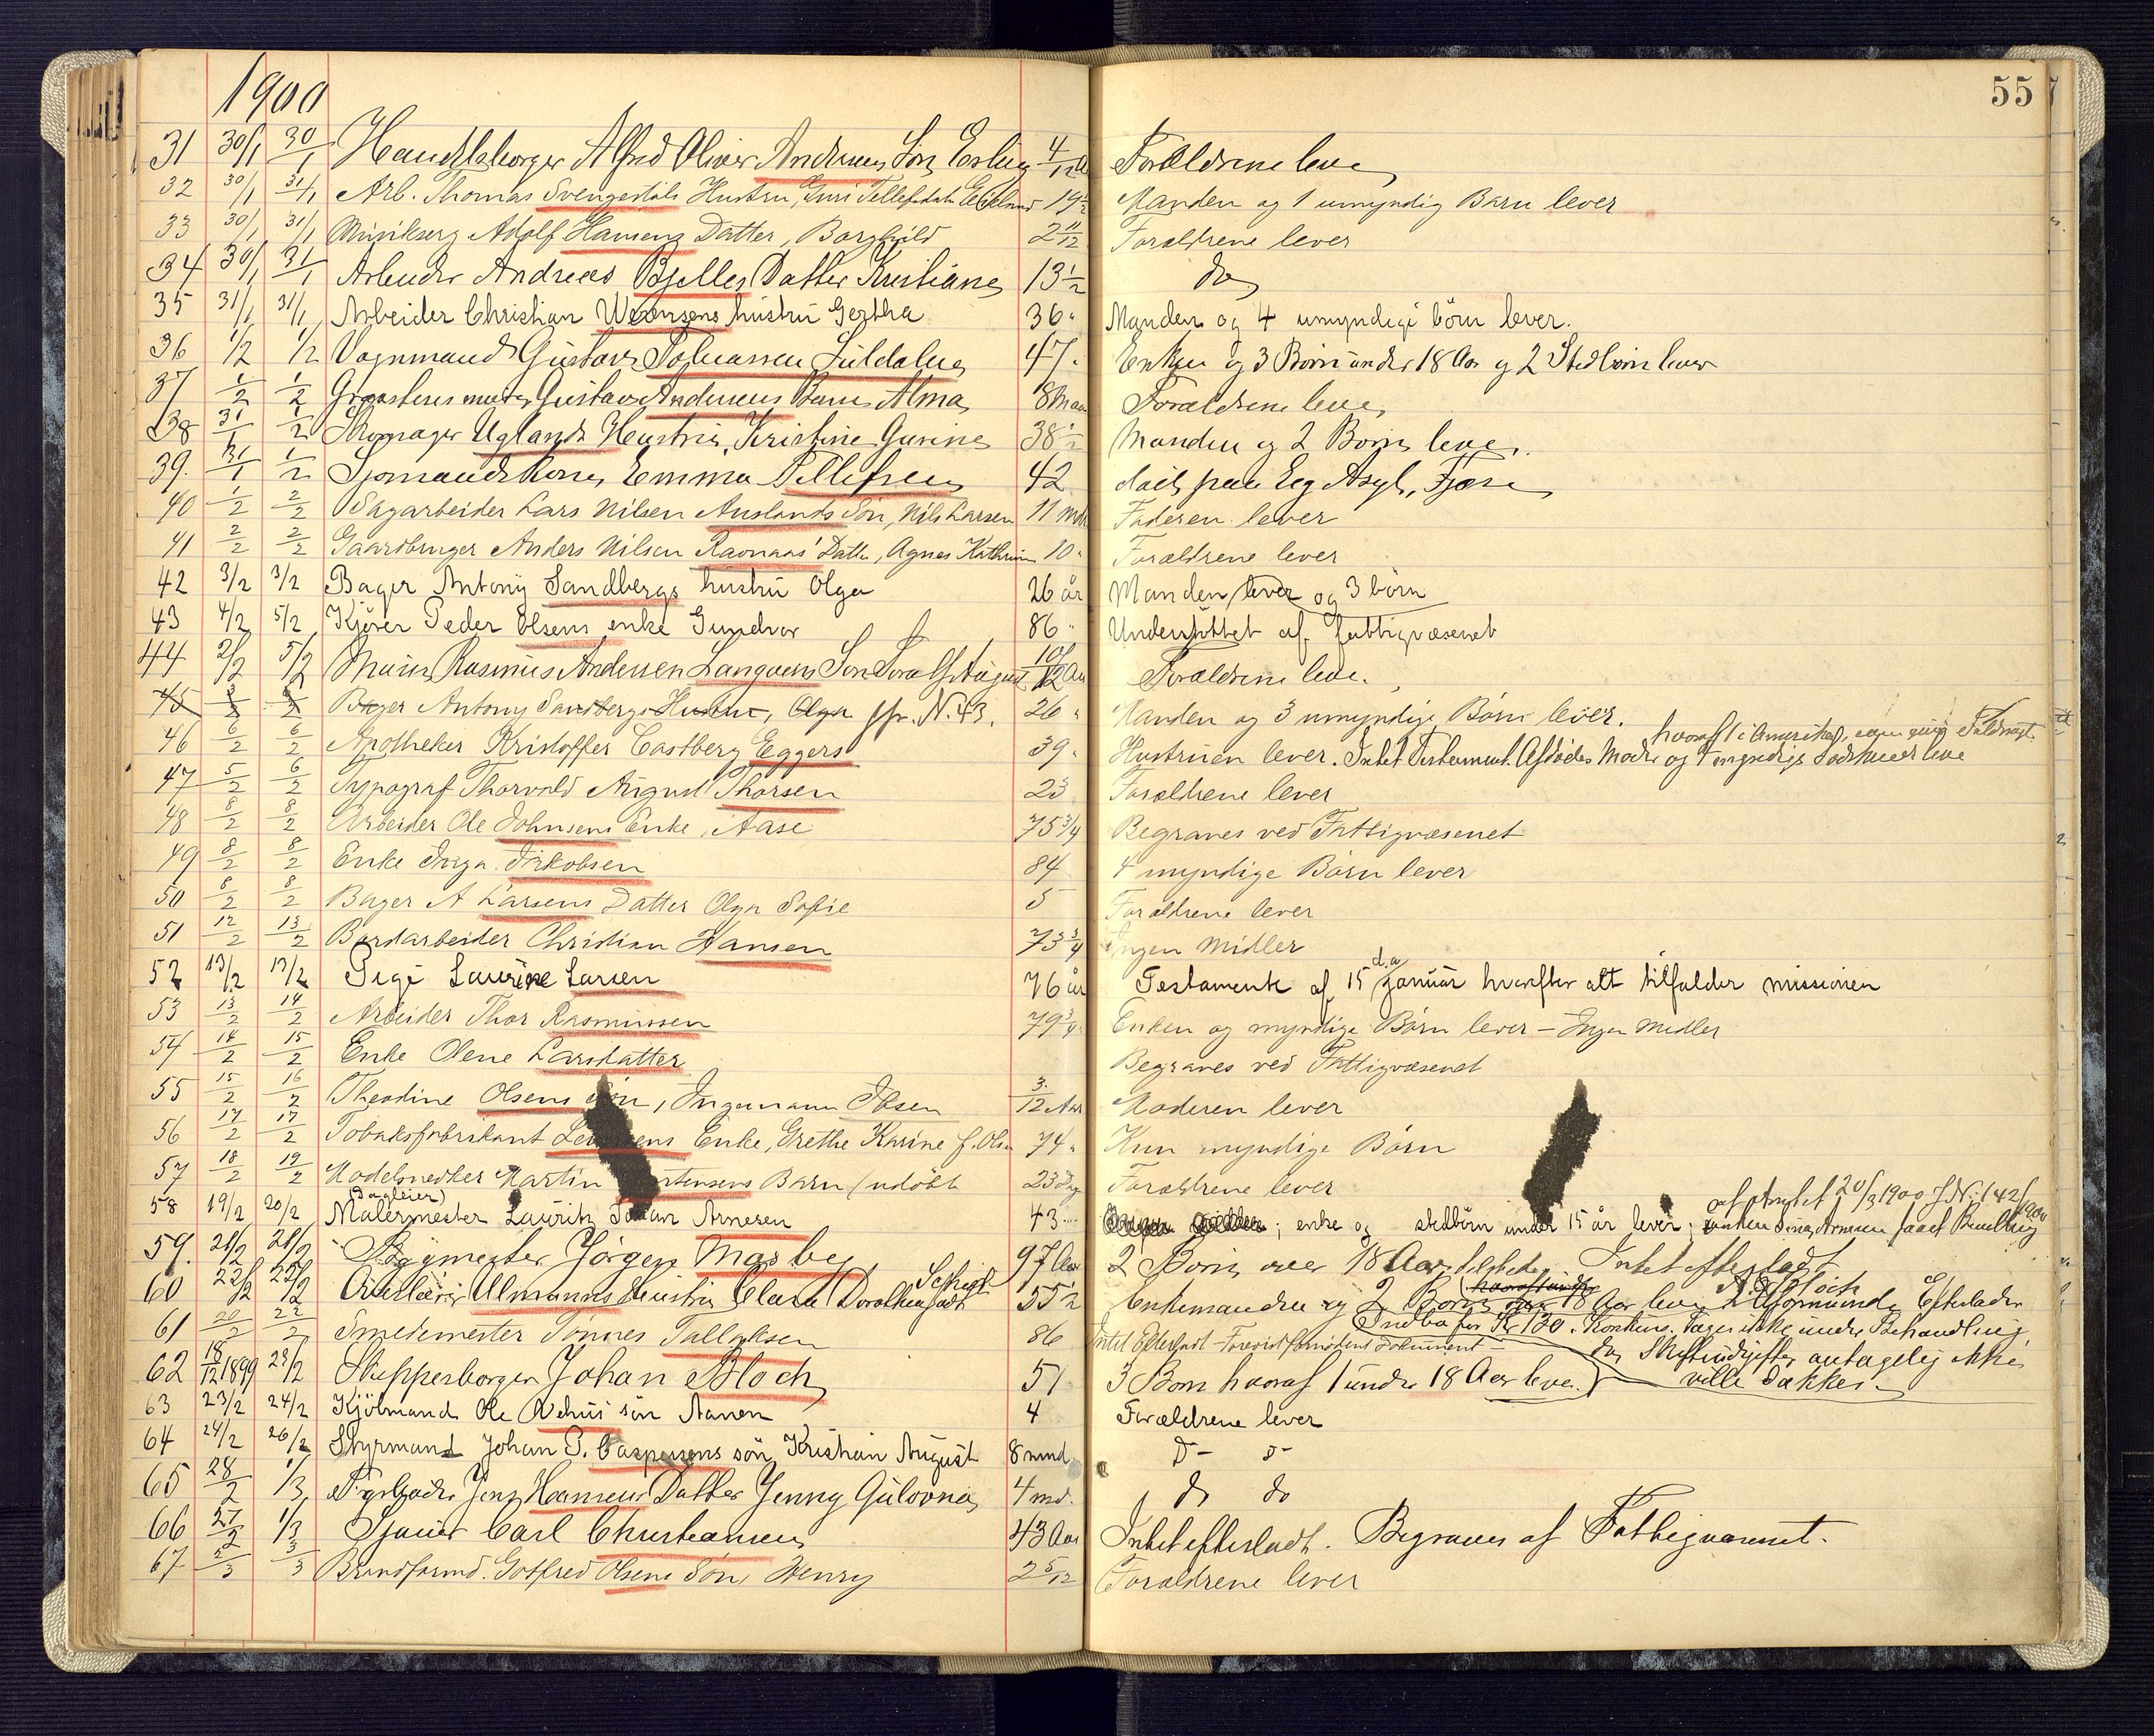 1900
55
31 30/1 30/1 Handelsborger Alfred Oliver Andersens Søn Erling 4/12 Forældrene leve
32 30/1 31/1 Arb. Thomas Svengestøls Hustru, Guri Tellefsdatter 19 1/2 Manden og 1 umyndig Barn lever
33 30/1 31/1 Musikserg Adolf Hansens Datter, Borghild 2 11/12 Forældrene lever
34 30/1 31/1 Arbeider Andreas Bjelles Datter Kristiane 13 1/2 do
35 31/1 31/1 Arbeider Christian hustru Gertha 36 " Manden og 4 umyndige børn lever.
36 1/2 1/2 Vognmand Gustav Tobiassen Suldalen 47. Enken og 3 Børn under 18 Aar og 2 Stedbørn lever
37 1/2 1/2 Gustav Andersens Barn Alma 8 Maan Forældrene leve,
38 31/1 1/2 Skomager Uglands Hustru, Kristine Gurine 38 1/2 Manden og 2 Børn leve.
39. 31/1 1/2 Sjømandskone Emma Tellefsen 42 død paa Eeg Asyl,
40 1/2 2/2 Sagarbeider Lars Nilsen Auslands Søn, Nils Larsen 11 mdr Faderen lever
41 2/2 2/2 Gaardbruger Anders Nilsen Ravnaas' Datter, Agnes Kathrine 10 " Forældrene lever
42 3/2 3/2 Bager Antony Sandbergs hustru Olga 26 år Manden lever og 3 børn
43 4/2 5/2 Kjører Peder Olsens enke Gundvor 86 " Understøttet af fattigvæsenet
44 2/2 5/2 Murer Rasmus Andersen Langaens Søn Toralf August 10/12 Aar Forældrene leve.
45 Bager Antony Sandbergs Hustru, Olga jfr. N. 43. 26 " Manden og 3 umyndige Børn lever.
46 6/2 6/2 Apotheker Kristoffer Castberg Eggers 39 " Hustruen lever. Intet Testament. Afdødes Moder og myndige Sødskende leve
hvoraf 1 i Amerika,
47 5/2 6/2 Typograf Thorvald August Thorsen 23 Forældrene lever
48 8/2 8/2 Arbeider Ole Johnsens Enke, Aase 75 3/4 Begraves ved Fattigvæsenet
49 8/2 8/2 Enke Inga Jakobsen 84 4 myndige Børn lever
50 8/2 8/2 Bager A Larsens Datter Olga Sofie 5 Forældrene lever
51 12/2 13/2 Bordarbeider Christian Hansen 73 3/4 Ingen Midler
52 13/2 13/2 Pige Laurine Larsen 76 år Testamente af 15 januar d.a. hvorefter alt tilfalder missionen
53 13/2 14/2 Arbeider Thor Rasmussen 79 3/4 Enken og myndige Børn lever – Ingen Midler
54 14/2 15/2 Enke Olene Larsdatter Begraves ved Fattigvæsenet
55 15/2 16/2 Theodine Olsens Søn, Ingemann Ibsen 3/12 Aar Moderen lever
56 17/2 17/2 Tobaksfabrikant Enke, Grethe Karine f. Olsen 74 " Kun myndige Børn
57 18/2 19/2 Modelsnedker Martin Barn (udøbt 23 dag Forældrene lever
58 19/2 20/2 Malermester (Dagleier) Lauritz Johan Arnesen 43 enke og stedbørn under 15 år lever;
20/3 1900 J.N. 142/1900
59. 21/2 21/2 Bygmester Jørgen Mosby 97 Aar 2 Børn over 18 Aar Intet efterladt
60 22/2 22/2 Ullmanns Hustru Clara Dorothea født 55 1/2 Enkemanden og 2 Børn 18 Aar leve
61 20/2 22/2 Smedemester Tønnes Tallaksen 86 Intet Efterladt
Indbo for Kr 130. Konkurs. tages ikke under Behandling
62 18/12 1899 23/2 Skipperborger Johan Bloch 51 3 Børn hvoraf 1 under 18 Aar leve.
da Skifteudgifter antagelig ikke ville dækkes.
63 23/2 24/2 Kjølmand Ole søn Aanen 4 Forældrene lever
64 24/2 26/2 Styrmand Johan P. Caspersens søn Kristian August 8 mnd D– o–
65 28/2 1/3 Fyrbøder Jens Hansens Datter Jenny Gulovna 4 md. do do
66 27/2 1/3 Sjauer Carl Christiansen 43 Aar Intet efterladt. Begraves af Fattigvæsenet.
67 2/3 3/3 Brandformd. Gotfred Olsens Søn Henry 2 5/12 Forældrene lever